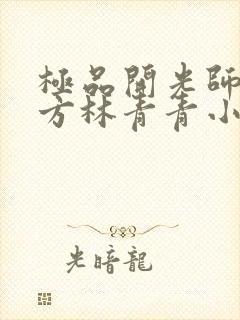 極品開光師
方林青青小
光暗龍